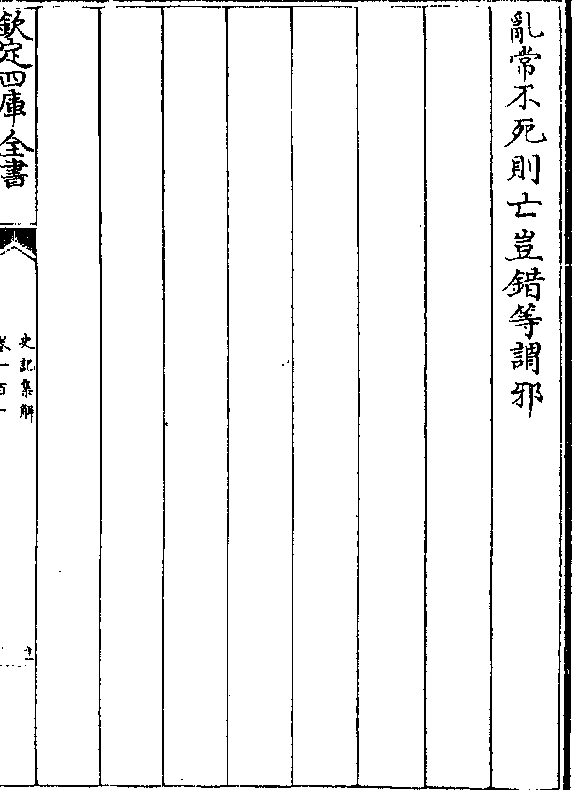 亂常不死則亡豈錯等謂邪
欽定四庫全書
史記集解
卷一百一
十二